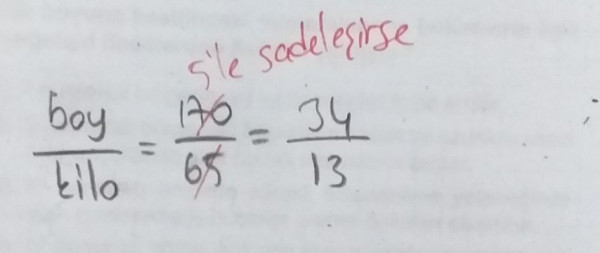 5'ile sadeleşirse
boy/kilo = 170/65 = 34/13